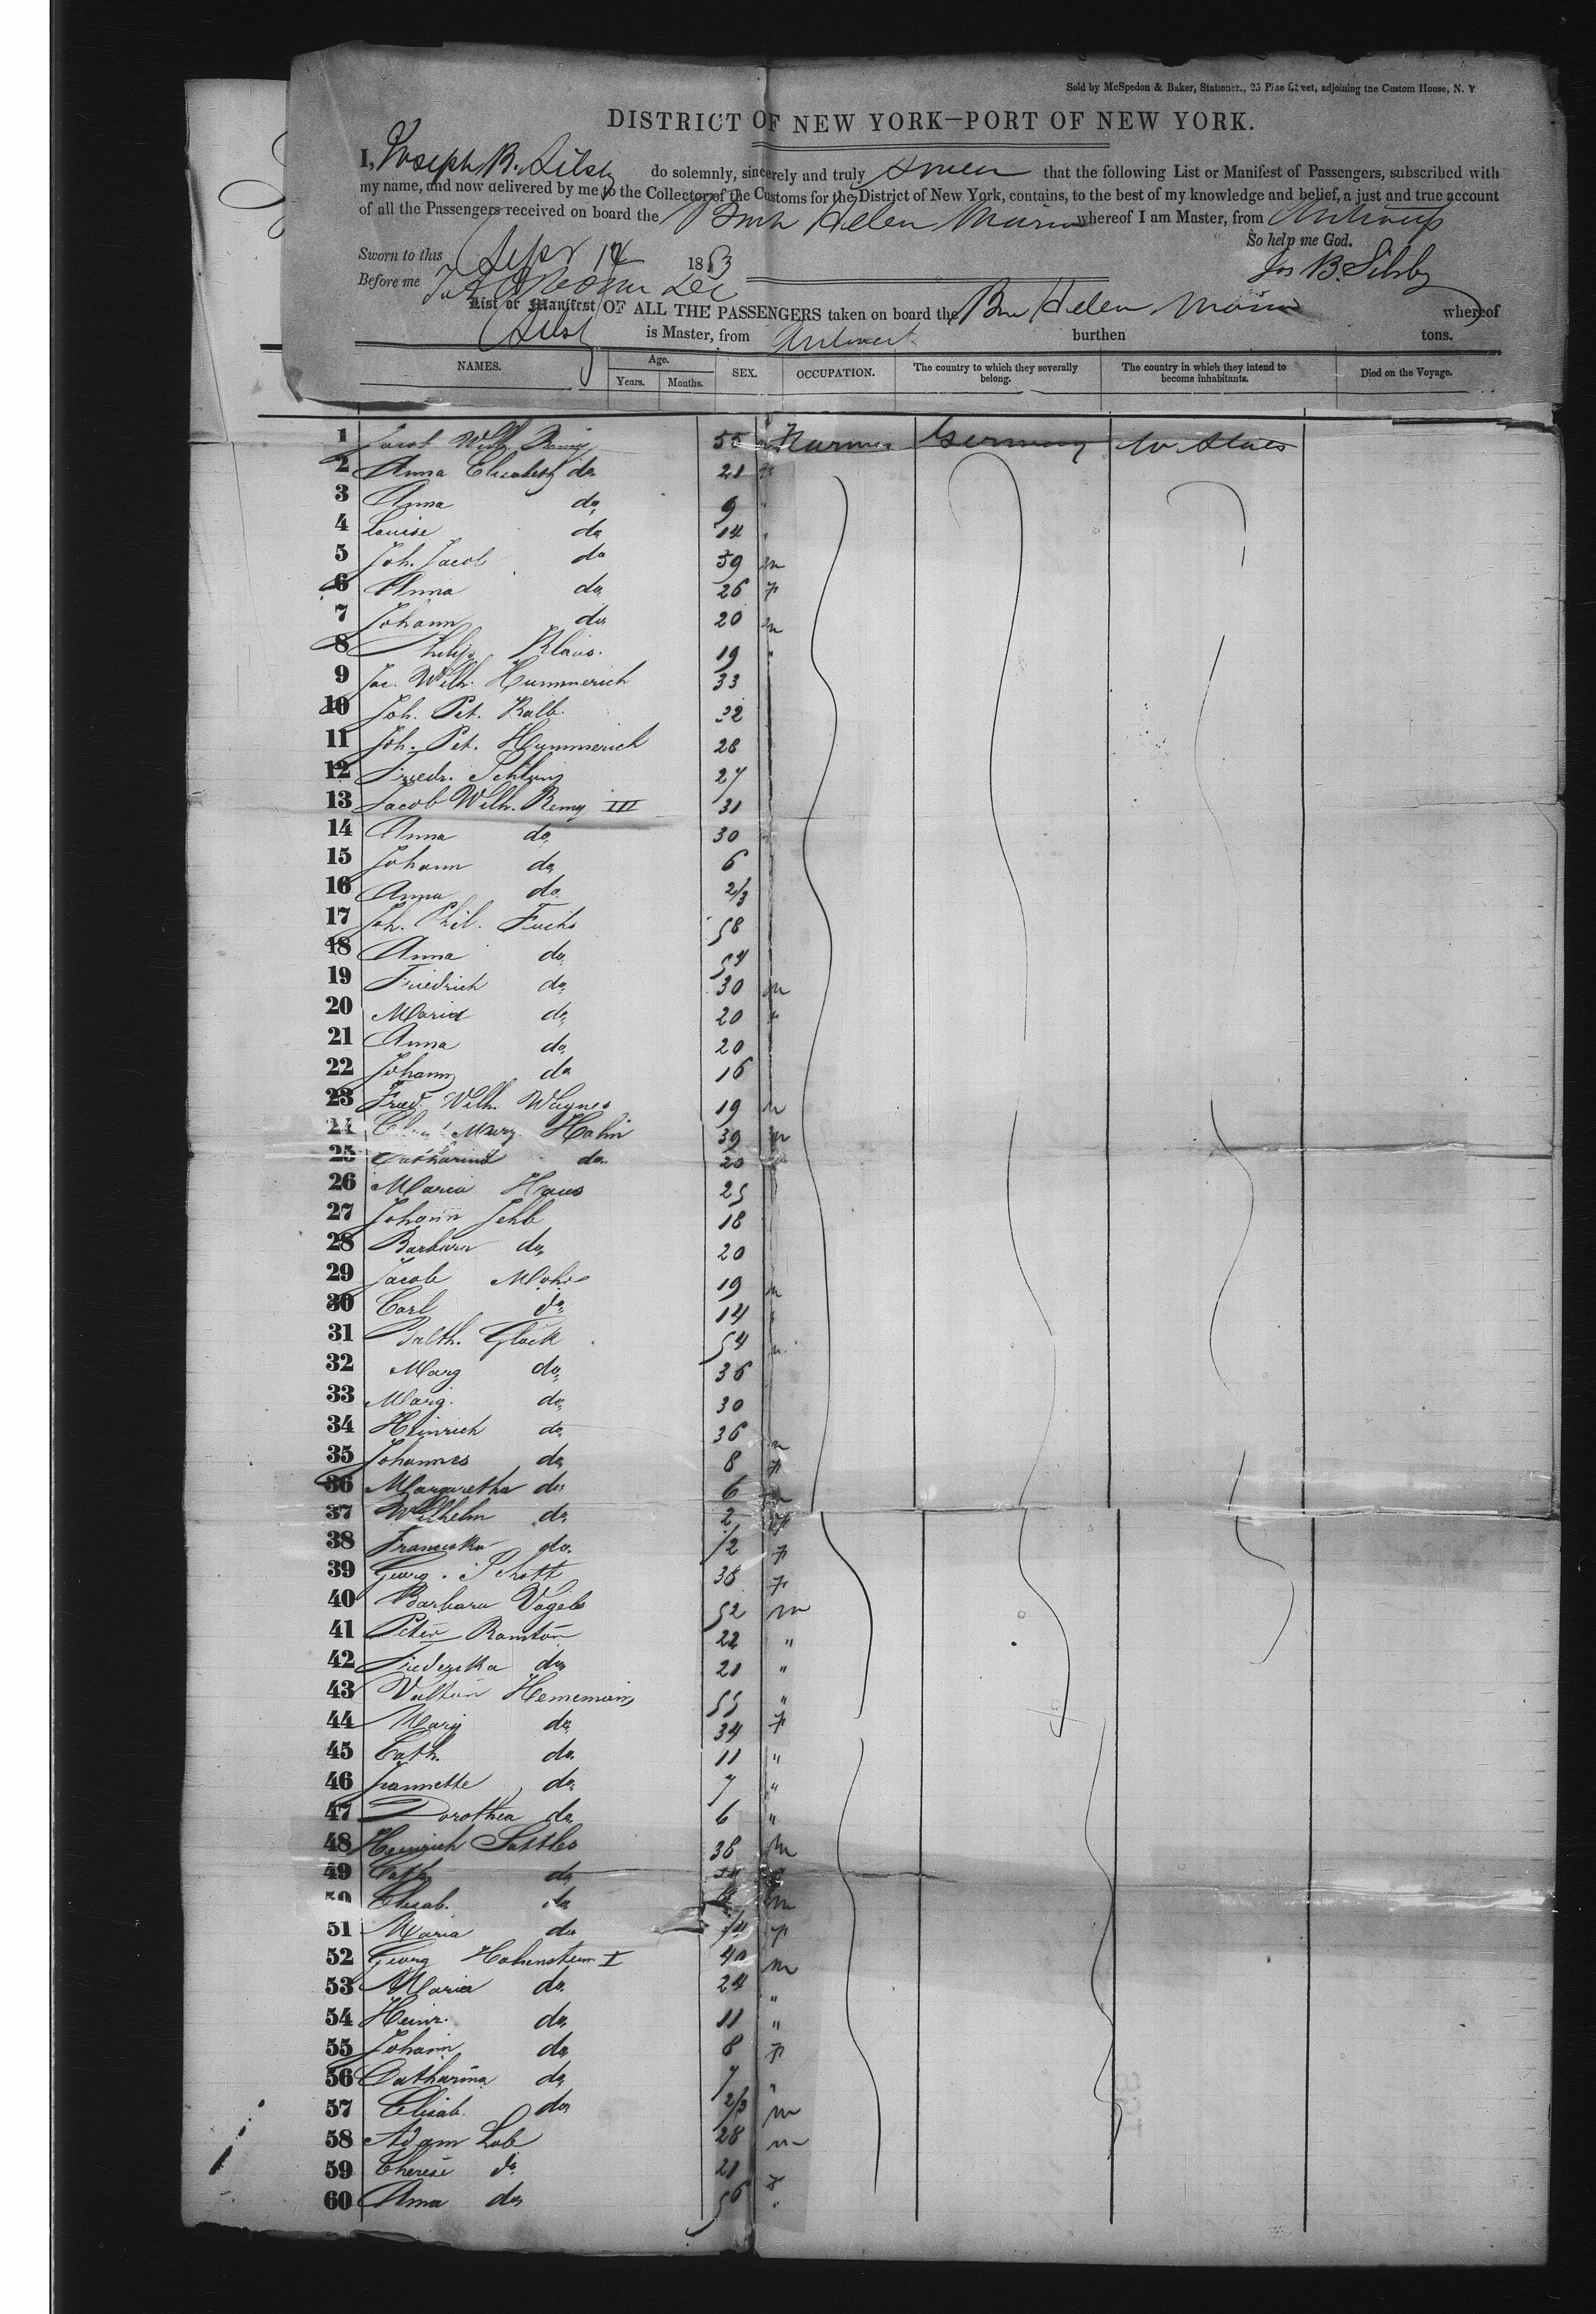 Sold by McSpedon & Baker, Stationers, 25 Pine Street, adjoining the Custom House, N. Y
DISTRICT OF NEW YORK—PORT OF NEW YORK.
I, Joseph B. Silsby do solemnly, sincerely and truly swear that the following List or Manifest of Passengers, subscribed with
my name, and now delivered by me to the Collector of the Customs for the District of New York, contains, to the best of my knowledge and belief, a just and true account
of all the Passengers received on board the Helen whereof I am Master, from Antwerp
So help me God.
Sworn to this Sept 14 1853
Jos B. Silsby
Before me
List or Manifest OF ALL THE PASSENGERS taken on board the Helen whereof
Silsby is Master, from Antwerp burthen tons.
NAMES. Age. Years. Months. SEX. OCCUPATION. The country to which they severally belong. The country in which they intend to become inhabitants. Died on the Voyage.
1 Jacob Wilh Remy 55 Farmer Germany U States
2 Anna Elisabeth do 21
3 Anna do 9 "
4 Louise do 14 "
5 Joh. Jacob do 59 m
6 Anna do 26 f
7 Johann do 20 m
8 Philip Klaus. 19 "
9 Jac. Wilh. Hummerich 33
10 Joh. Pet. Kalb. 32
11 Joh. Pet. Hummerich 28
12 Friedr. 27
13 Jacob Wilh. Remy III 31
14 Anna do 30
15 Johann do 6
16 Anna do. 2/3
17 Joh. Phil. Fuchs 58
18 Anna do 54
19 Friedrich do 30 m
20 Maria do 20 "
21 Anna do 20
22 Johann do 16
23 Fried. Wilh. Wagner 19 m
24 Marg. Hahn 39 m
25 Catharina do. 20
26 Maria 25
27 Johann 18
28 Barbara do 20
29 Jacob 19 m
30 Carl do 14
31 Balth. Glock 54 m
32 Marg do 36
33 Marg. do 30
34 Heinrich do 36 m
35 Johannes do 8 f
36 Margaretha do 6
37 Wilhelm do 2
38 Franciska do. 1/2 f
39 Georg. Schott 38 f
40 Barbara Vogels 52 m
41 Peter 22 "
42 do 21 "
43 55 "
44 Marg do 34 f
45 Cath. do. 11 "
46 Jeannette do 7 "
47 Dorothea do 6 "
48 Heinrich Sattler 38 m
49 Cath. do
50 Elisab. do m
51 Maria do f
52 Georg Hohenstein I 40 m
53 Maria do. 24 "
54 Heinr. do. 11 "
55 Johann do 8 f
56 Catharina do 7 "
57 Elisab. do 2/3 m
58 Adam Lob 28 m
59 Therese do 21 f
60 Anna do 56 "